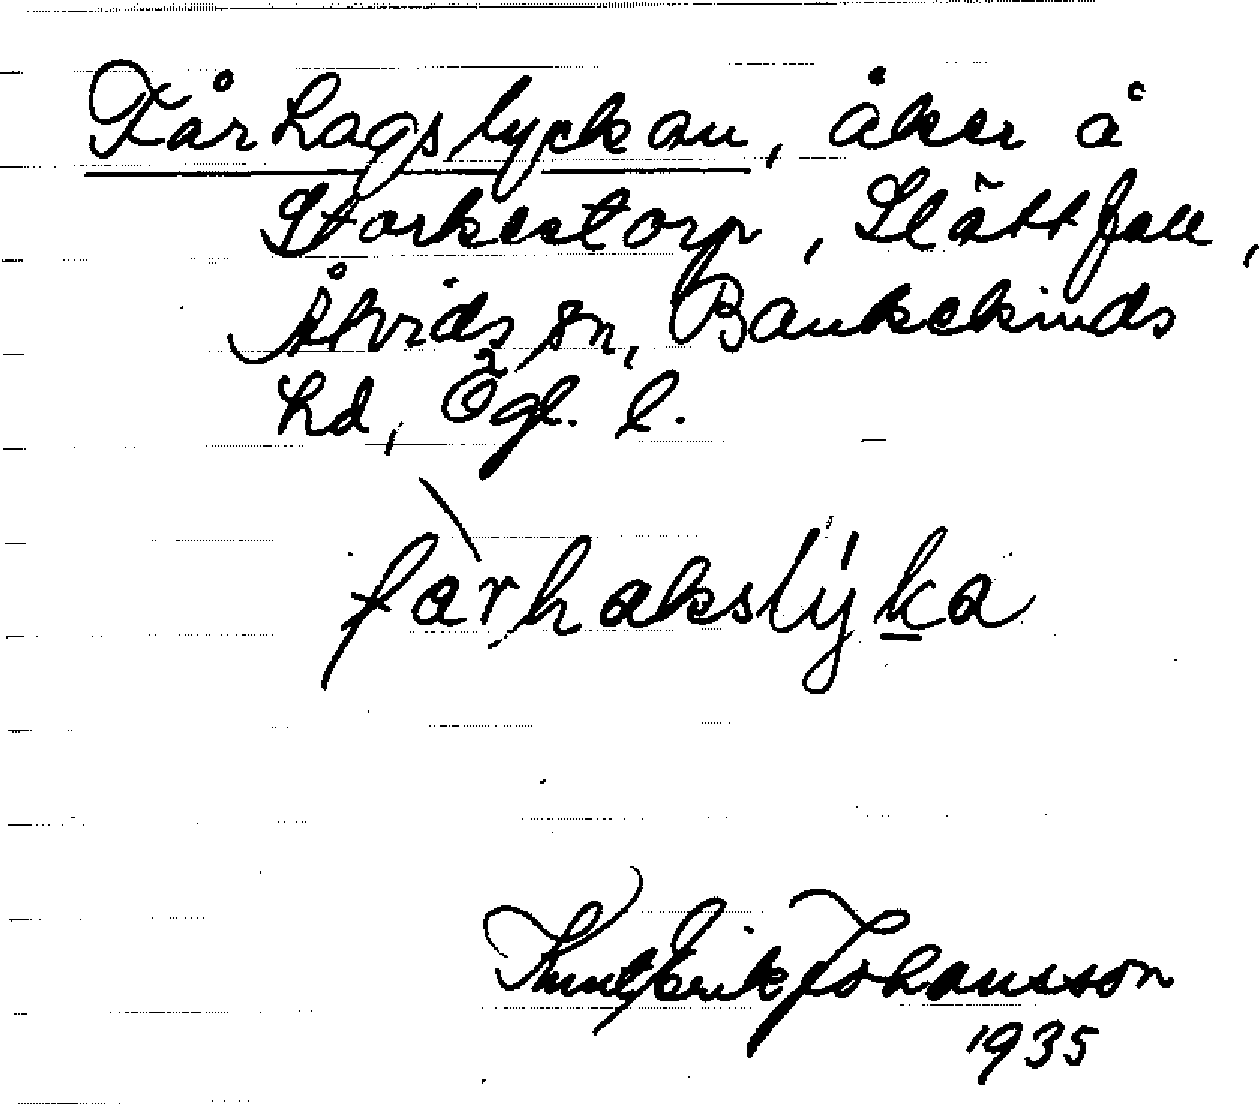 Fårhagslyckan, åker å
Storkestorp, Slättfall,
Åtvids sn, Bankekinds
hd, Ögl. l.
fàrhakslýka
Knut Erik Johansson
1935